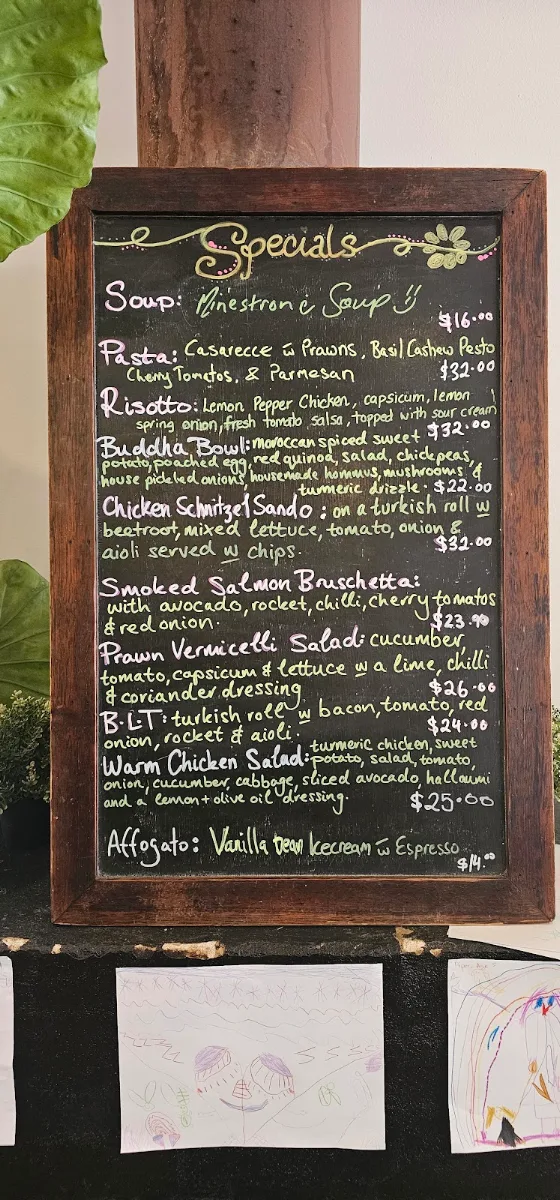 Specials
Soup: Minestrone Soup
$16.00
Pasta: Casarecce w Prawns, Basil Cashew Pesto
Cherry Tomatos, & Parmesan $32.00
Risotto: Lemon Pepper Chicken, capsicum, lemon
spring onion, fresh tomato salsa, topped with sour cream
$32.00
Buddha Bowl: moroccan spiced sweet
potato, poached egg, red quinoa, salad, chickpeas,
house pickled onions, housemade hommus, mushrooms &
turmeric drizzle. $22.00
Chicken Schnitzel Sando: on a turkish roll w
beetroot, mixed lettuce, tomato, onion &
aioli served w chips. $32.00
Smoked Salmon Bruschetta:
with avocado, rocket, chilli, cherry tomatos
& red onion. $23.00
Prawn Vermicelli Salad: cucumber,
tomato, capsicum & lettuce w a lime, chilli
& coriander dressing $26.00
B.L.T: turkish roll w bacon, tomato, red
onion, rocket & aioli. $24.00
Warm Chicken Salad: turmeric chicken, sweet
potato, salad, tomato,
onion, cucumber, cabbage, sliced avocado, halloumi
and a lemon + olive oil dressing. $25.00
Affogato: Vanilla bean Icecream w Espresso
$14.00